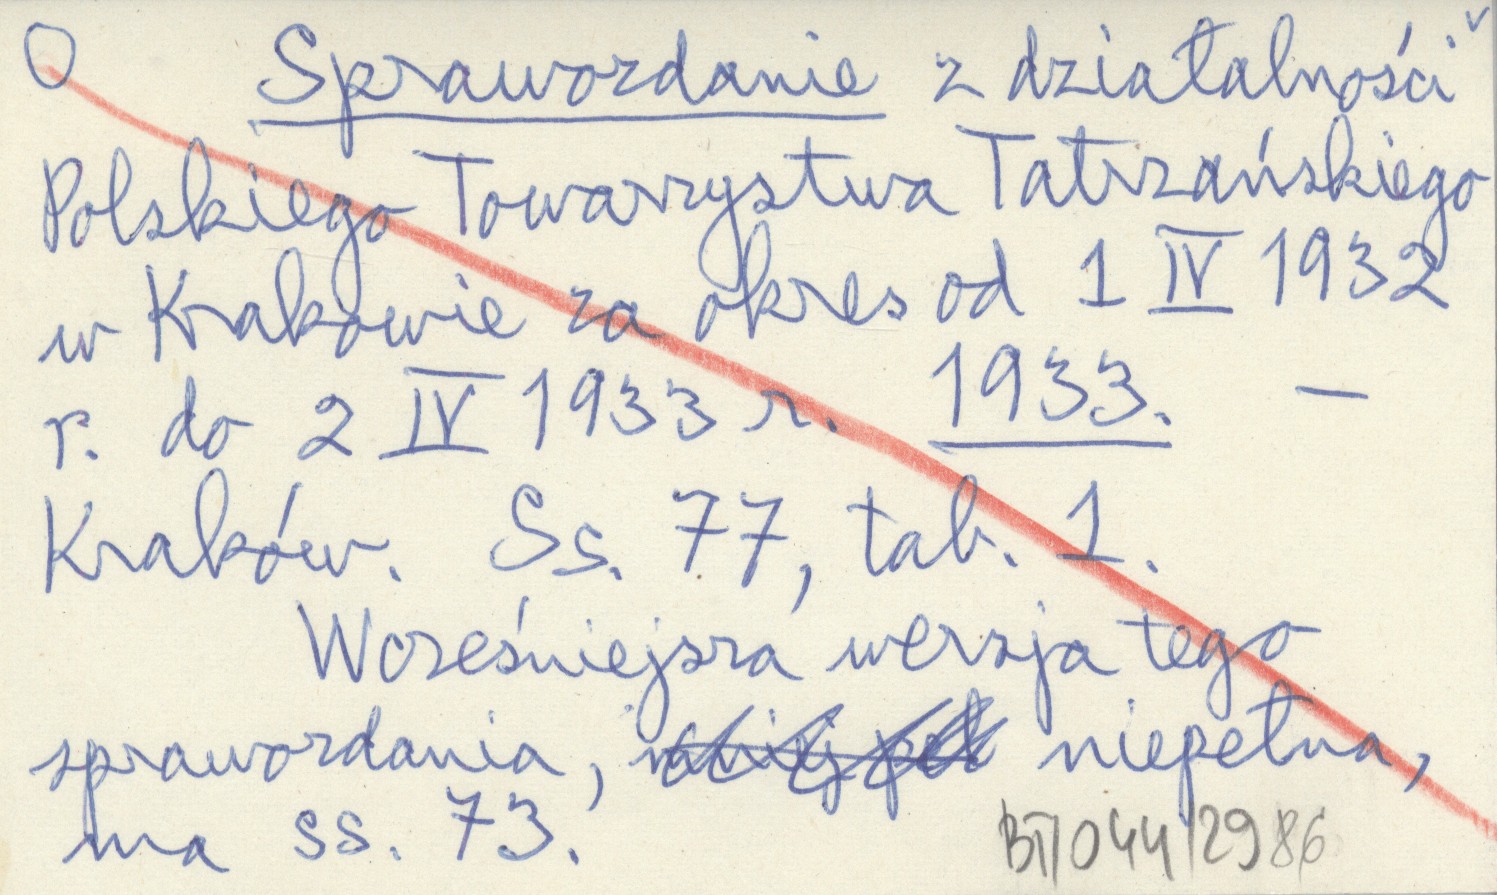 O Sprawozdanie z działalności v
Polskiego Towarzystwa Tatrzańskiego
w Krakowie za okres od 1 IV 1932
r. do 2 IV 1933 r. 1933. —
Kraków. Ss. 77, tab. 1.
Wcześniejsza wersja tego
sprawozdania, niepełna,
ma ss. 73.
BT/044/2986